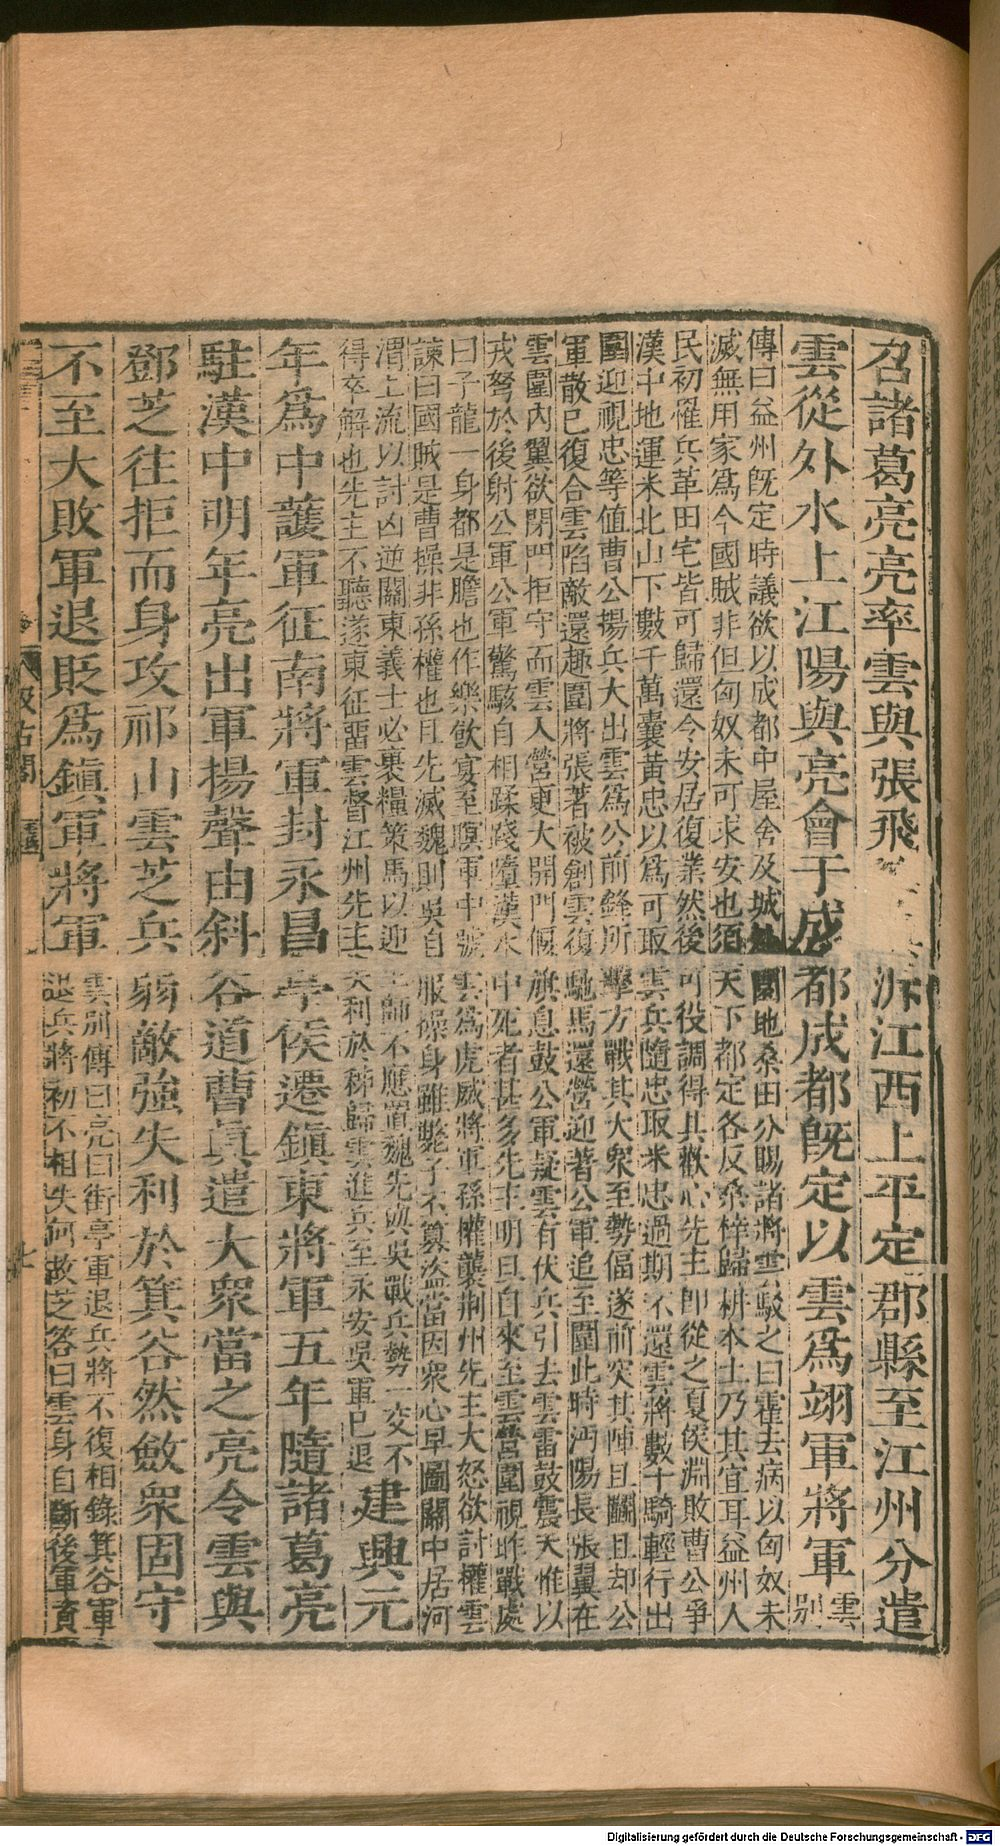 召諸葛亮亮率雲與張飛泝江西上平定郡縣至江州分遣
雲從外水上江陽與亮會于成都成都旣定以雲爲翊軍將軍雲别
傳曰益州旣定時議欲以成都中屋舍及城外園地桑田分賜諸將雲駁之曰霍去病以匈奴未
滅無用家爲今國賊非但匈奴未可求安也須天下都定各反桑梓歸耕本土乃其宜耳益州人
民初罹兵革田宅皆可歸還今安居復業然後可役調得其歡心先主卽從之夏侯淵敗曹公爭
漢中地運米北山下數千萬囊黃忠以爲可取雲兵隨忠取米忠過期不還雲將數十騎輕行出
圍迎視忠等值曹公揚兵大出雲爲公前鋒所擊方戰其大衆至勢偪遂前突其陣且鬭且却公
軍散已復合雲陷敵還趣圍將張著被創雲復馳馬還營迎著公軍追至圍此時沔陽長張翼在
雲圍內翼欲閉門拒守而雲入營更大開門偃旗息鼓公軍疑雲有伏兵引去雲雷鼓震天惟以
戎弩於後射公軍公軍驚駭自相蹂踐墮漢水中死者甚多先主明旦自來至雲營圍視昨戰處
曰子龍一身都是膽也作樂飲宴至瞑軍中號雲爲虎威將軍孫權襲荆州先主大怒欲討權雲
諫曰國賊是曹操非孫權也且先滅魏則吳自服操身雖斃子丕篡盜當因衆心早圖關中居河
渭上流以討凶逆關東義士必裹糧策馬以迎王師不應置魏先與吳戰兵勢一交不
得卒解也先主不聽遂東征留雲督江州先主失利於秭歸雲進兵至永安吳軍已退建興元
年爲中護軍征南將軍封永昌亭侯遷鎮東將軍五年隨諸葛亮
駐漢中明年亮出軍揚聲由斜谷道曹眞遣大衆當之亮令雲與
鄧芝往拒而身攻祁山雲芝兵弱敵強失利於箕谷然斂衆固守
不至大敗軍退貶爲鎮軍將軍雲别傳曰亮曰街亭軍退兵將不復相錄箕谷軍
退兵將初不相失何故芝答曰雲身自斷後軍資
汲古閣
七
Digitalisierung gefördert durch die Deutsche Forschungsgemeinschaft - DFG